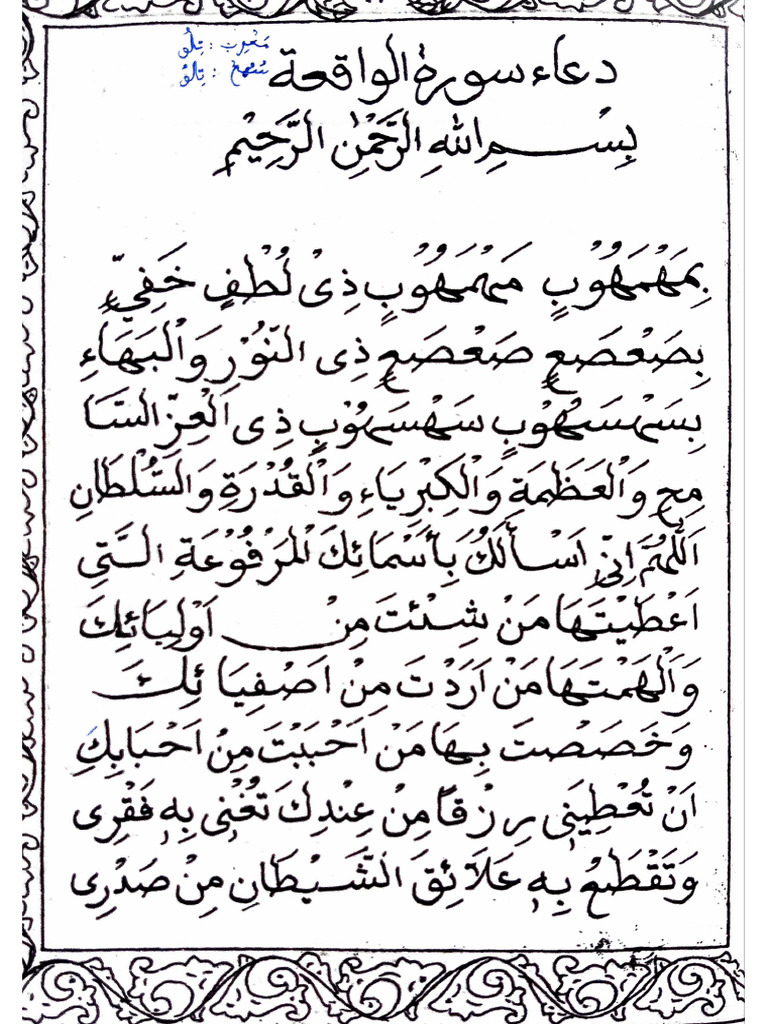 دعاء سورة الواقعة
مغرب : تيلو
سبهح : تيلو
بِسْمِ اللهِ الرَّحْمٰنِ الرَّحِيْمِ
بِمَهْمَهُوْبٍ مَهْمَهُوْبٍ ذِیْ لُطْفٍ خَفِيٍّ
بِصَعْصَعٍ صَعْصَعٍ ذِی النُّوْرِ وَالْبَهَاءِ
بِسَهْسَهُوْبٍ سَهْسَهُوْبٍ ذِی الْعِزِّ السَّا
مِحِ وَالْعَظَمَةِ وَالْكِبْرِيَاءِ وَالْقُدْرَةِ وَالسُّلْطَانِ
اَللّٰهُمَّ اِنِّیْ اَسْأَلُكَ بِأَسْمَائِكَ الْمَرْفُوْعَةِ الَّتِی
اَعْطَيْتَهَا مَنْ شِئْتَ مِنْ اَوْلِيَائِكَ
وَاَلْهَمْتَهَا مَنْ اَرَدْتَ مِنْ اَصْفِيَائِكَ
وَخَصَصْتَ بِهَا مَنْ اَحْبَبْتَ مِنْ اَحْبَابِكَ
اَنْ تُعْطِيَنِی رِزْقًا مِنْ عِنْدِكَ تُغْنِی بِهٖ فَقْرِی
وَتَقْطَعُ بِهٖ عَلَائِقَ الشَّيْطَانِ مِنْ صَدْرِی